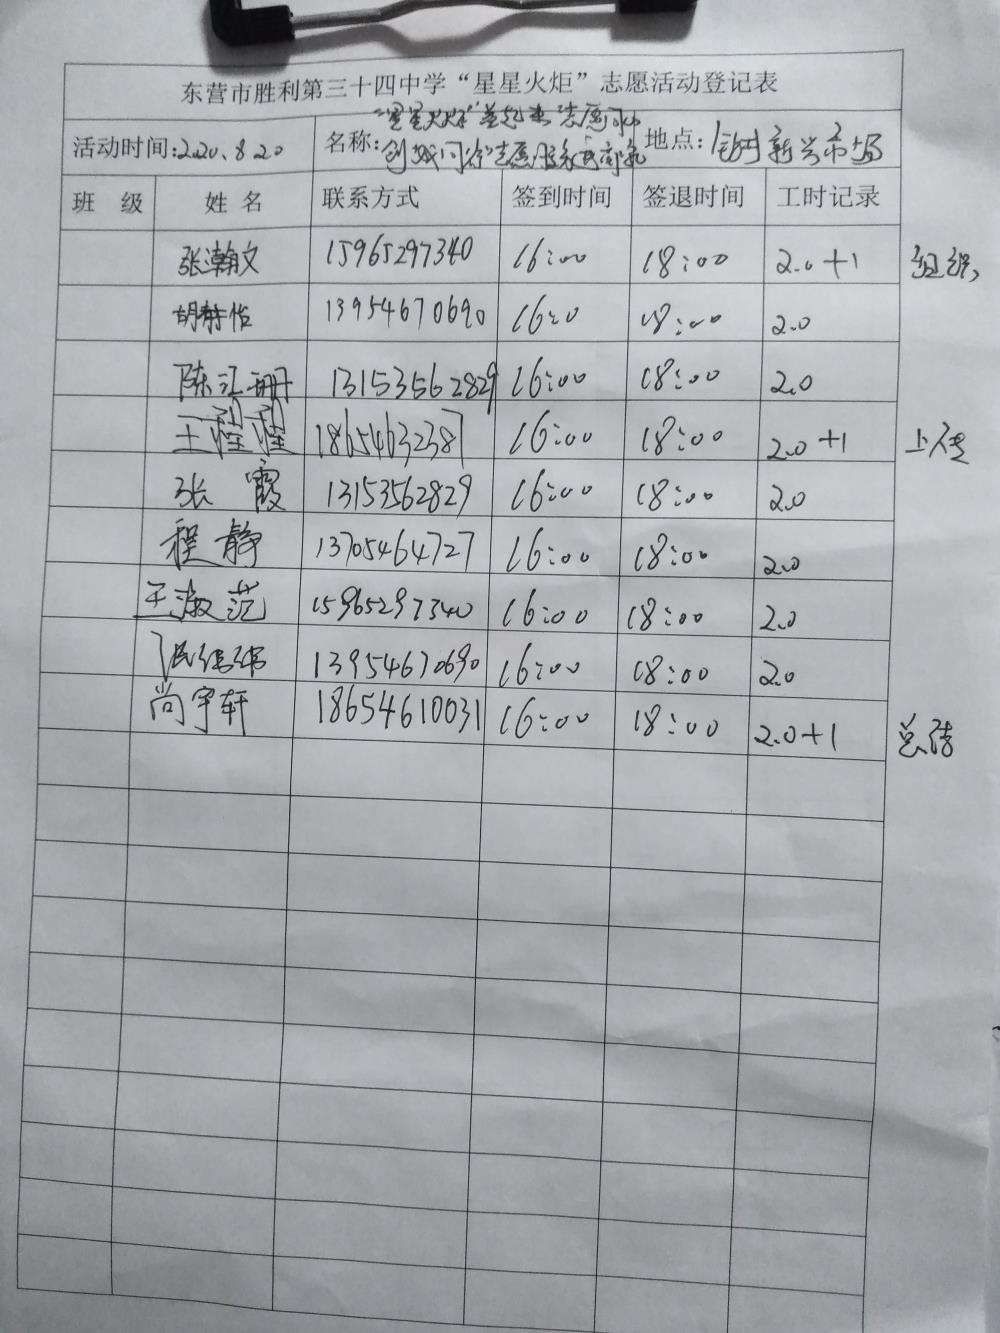 东营市胜利第三十四中学“星星火炬”志愿活动登记表
活动时间:2020.8.20 名称:“星星火炬”志愿 创城 志愿服务 地点: 新兴市场
班 级 姓 名 联系方式 签到时间 签退时间 工时记录
张瀚文 15965297340 16:00 18:00 2.0+1 组织
胡静怡 13954670690 16:0 18:00 2.0
陈汇珊 13153562829 16:00 18:00 2.0
王程程 18654632387 16:00 18:00 2.0+1 上传
张 霞 13153562829 16:00 18:00 2.0
程静 13705464727 16:00 18:00 2.0
王淑范 15965297340 16:00 18:00 2.0
13954670690 16:00 18:00 2.0
尚宇轩 18654610031 16:00 18:00 2.0+1 总结